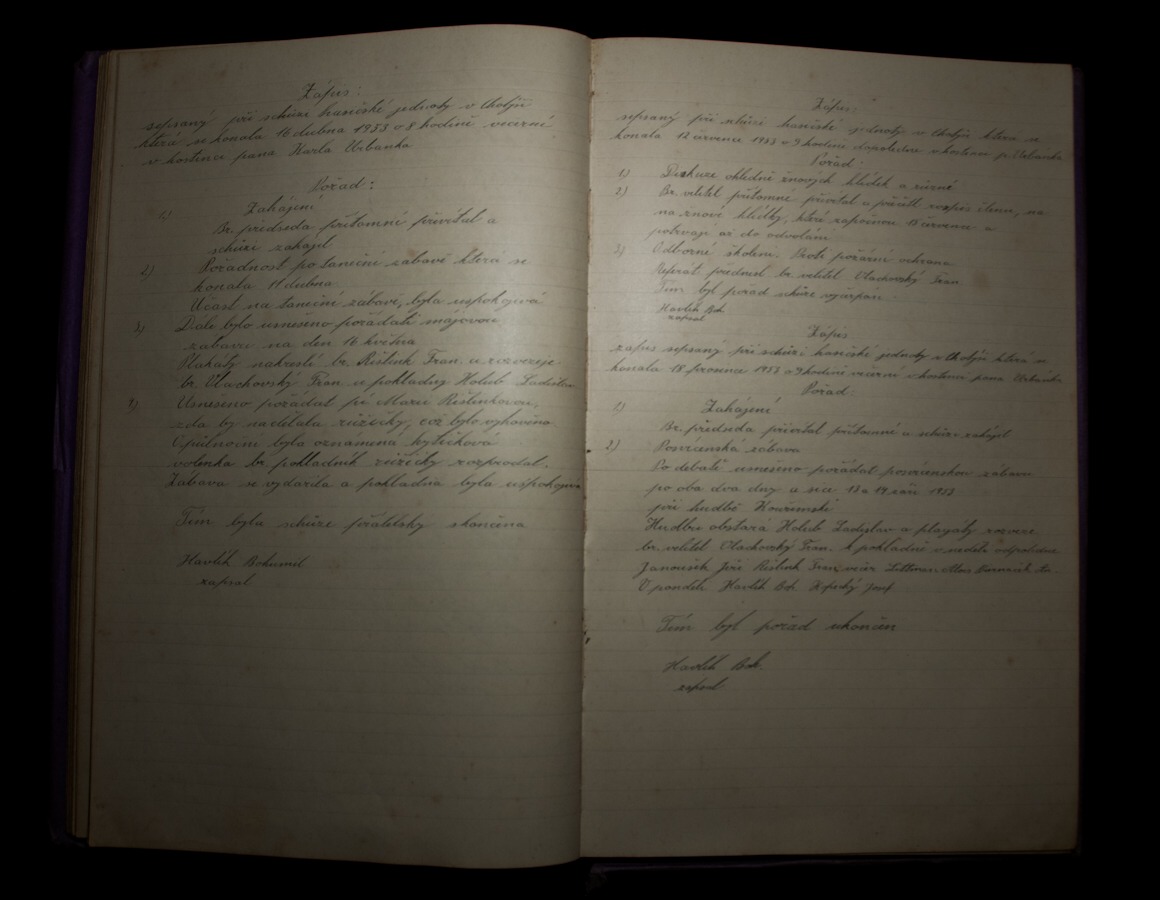 Zápis:
sepsaný při schůzi hasičské jednoty v Chotýši
která se konala 16 dubna 1953 o 8 hodině večerní
v hostinci pana Karla Urbanka
Pořad:
1) Zahájení
Br. předseda přítomné přivítal a
schůzi zahájil
2) Pořadnost po taneční zábavě která se
konala 11 dubna
Učast na taneční zábavě, byla uspokojivá
3) Dále bylo usnešeno pořádati májovou
zabavu na den 16 května
Plakáty nakreslí br. Rištink Fran. a rozveze
br. Vlachovský Fran. a pokladny Holub Ladislav
4) Usnešeno požádat pí Marii Rištinkovou,
zda by nadělala růžičky, což bylo vyhověno
O půlnocni byla oznamená kytičková
volenka br. pokladník růžičky rozprodal.
Zábava se vydařila a pokladna byla uspokojiva
Tím byla schůze přátelsky skončena
Havlík Bohumil
zapsal
Zápis:
sepsaný při schůzi hasičské jednoty v Chotýši která se
konala 12 července 1953 o 9 hodině dopoledne v hostinci p. Urbanka
Pořad
1) Diskuze ohledně žnových hlídek a různé
2) Br. velitel přítomné přivítal a přečetl rozpis členu, na
na žnové hlídky, které započnou 13 července a
potrvají až do odvolání
3) Odborné školení. Proti požární ochrana
Referát přednesl br. velitel Vlachovský Fran
Tím byl pořad schůze vyčerpán.
Havlík Boh.
zapsal
Zápis
zapis sepsaný při schůzi hasičské jednoty v Chotýši která se
konala 18 prosince 1953 o 9 hodině večerní v hostinci pana Urbanka
Pořad:
1) Zahájení
Br. předseda přivítal přítomné a schůzi zahájil
2) Posvícenská zábava
Po debatě usnešeno pořádat posvícenskou zábavu
po oba dva dny a sice 13 a 14 září 1953
při hudbě Kouřimské
Hudbu obstará Holub Ladislav a playaty rozveze
br. velitel Vlachovský Fran. k pokladně v neděli odpoledne
Janoušek Jiří Rištink Fran, večer
V pondělí Havlík Boh. Josef
Tím byl pořad ukončen
Havlík Boh.
zapsal